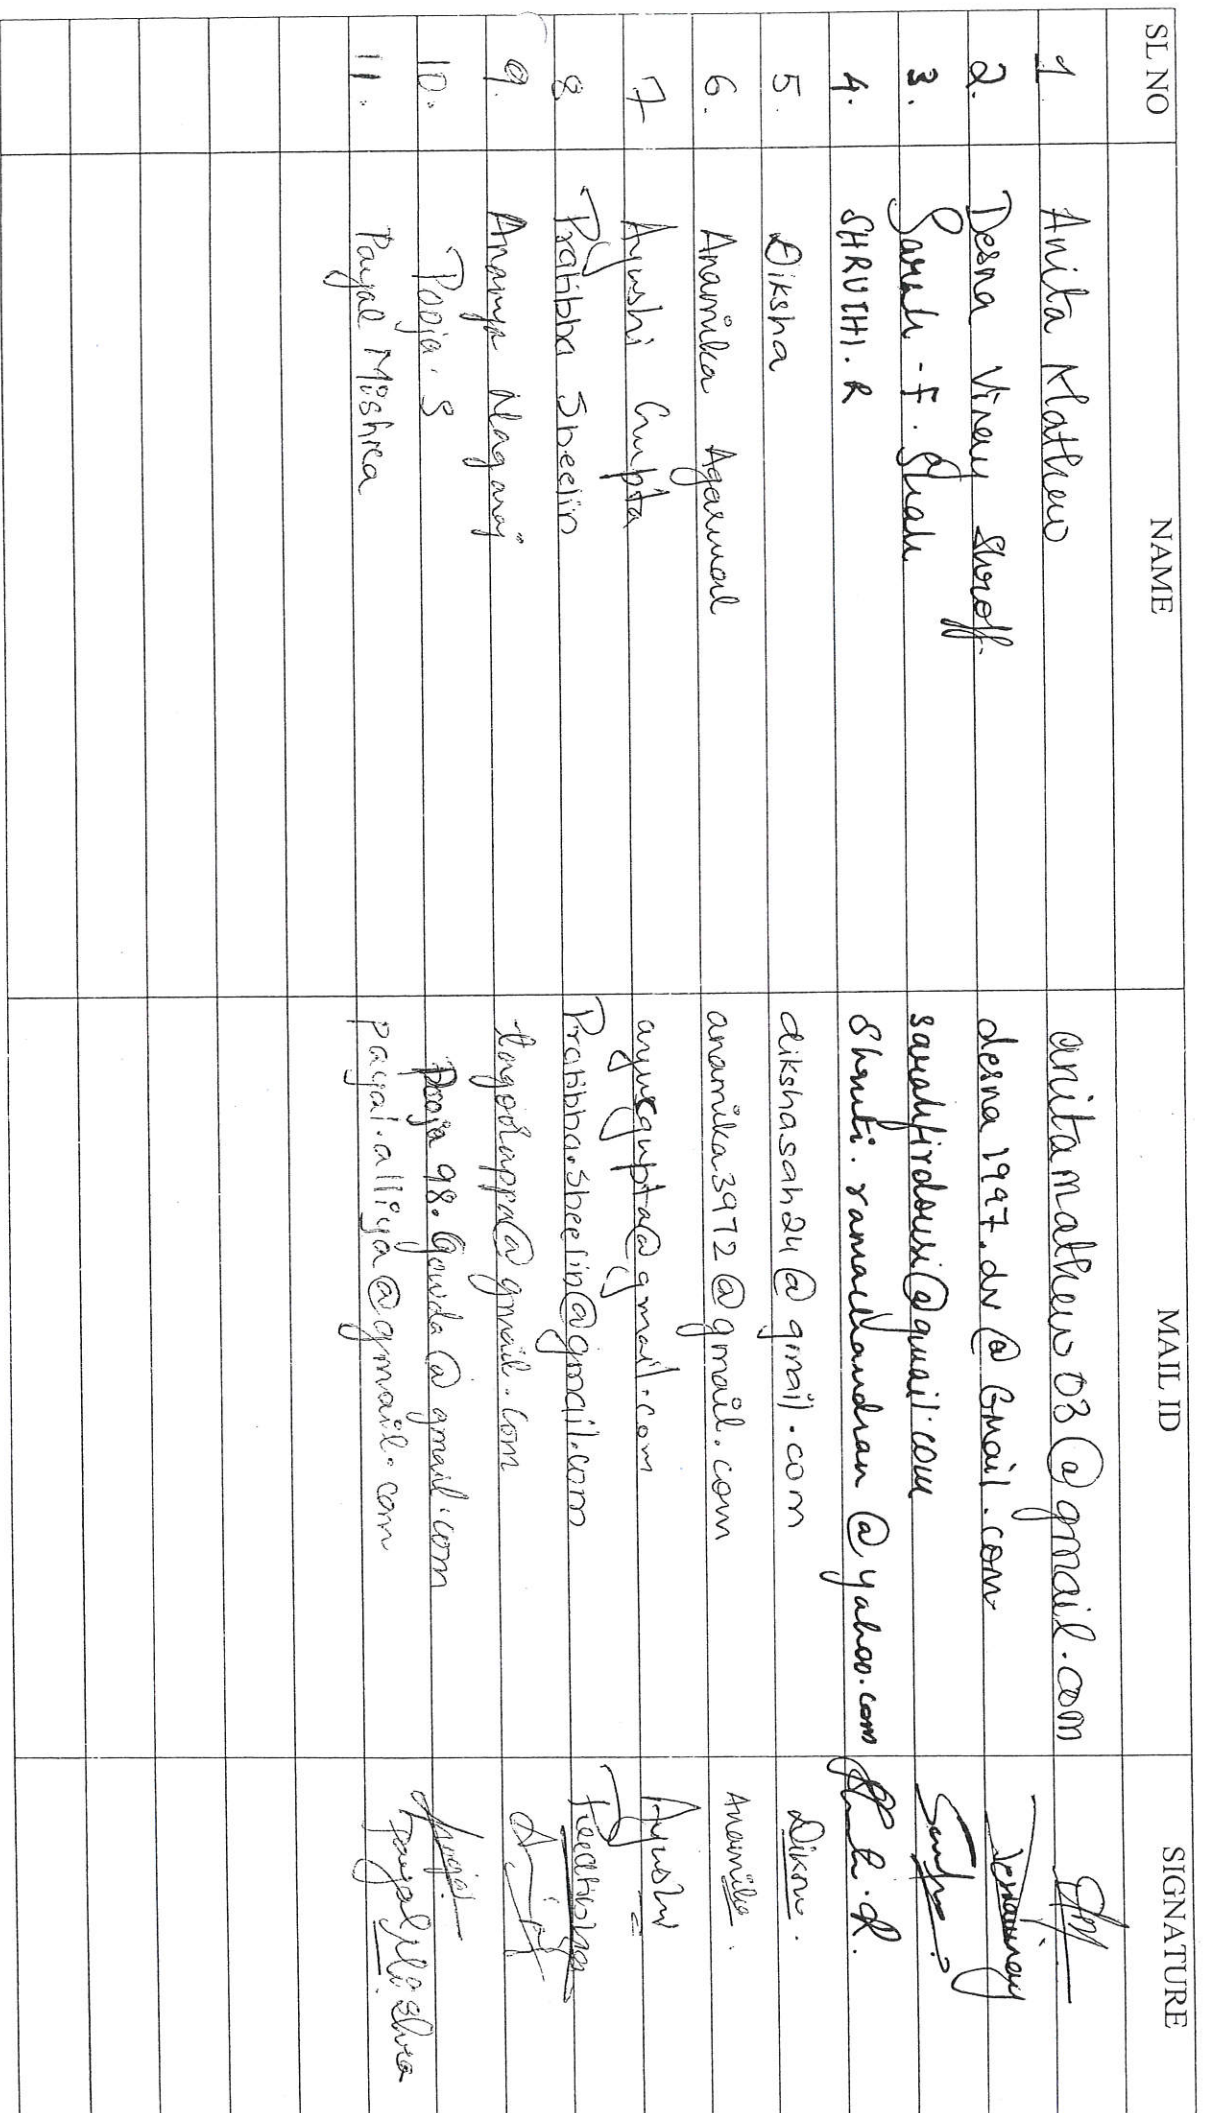 SL NO NAME MAIL ID SIGNATURE
1 Anita Mathew anitamathew03@gmail.com
2. Desna Vinay Shroff. desna1997.dv@Gmail.com
3. Sarah - F. Shah sarahfirdousi@gmail.com
4. SHRUTHI. R Shruti.ramachandran@yahoo.com
5. Diksha dikshasah24@gmail.com
6. Anamika Agarwal anamika3972@gmail.com Anamika.
7 Ayushi Gupta ayuxgupta@gmail.com Ayushi
8 Pratibha Sheelin Pratibha.sheelin@gmail.com
9. Ananya Nagaraj @gmail.com
10. Pooja. S Pooja98.Gowda@gmail.com Pooja
11. Payal Mishra payal.alliya@gmail.com Payal Mishra